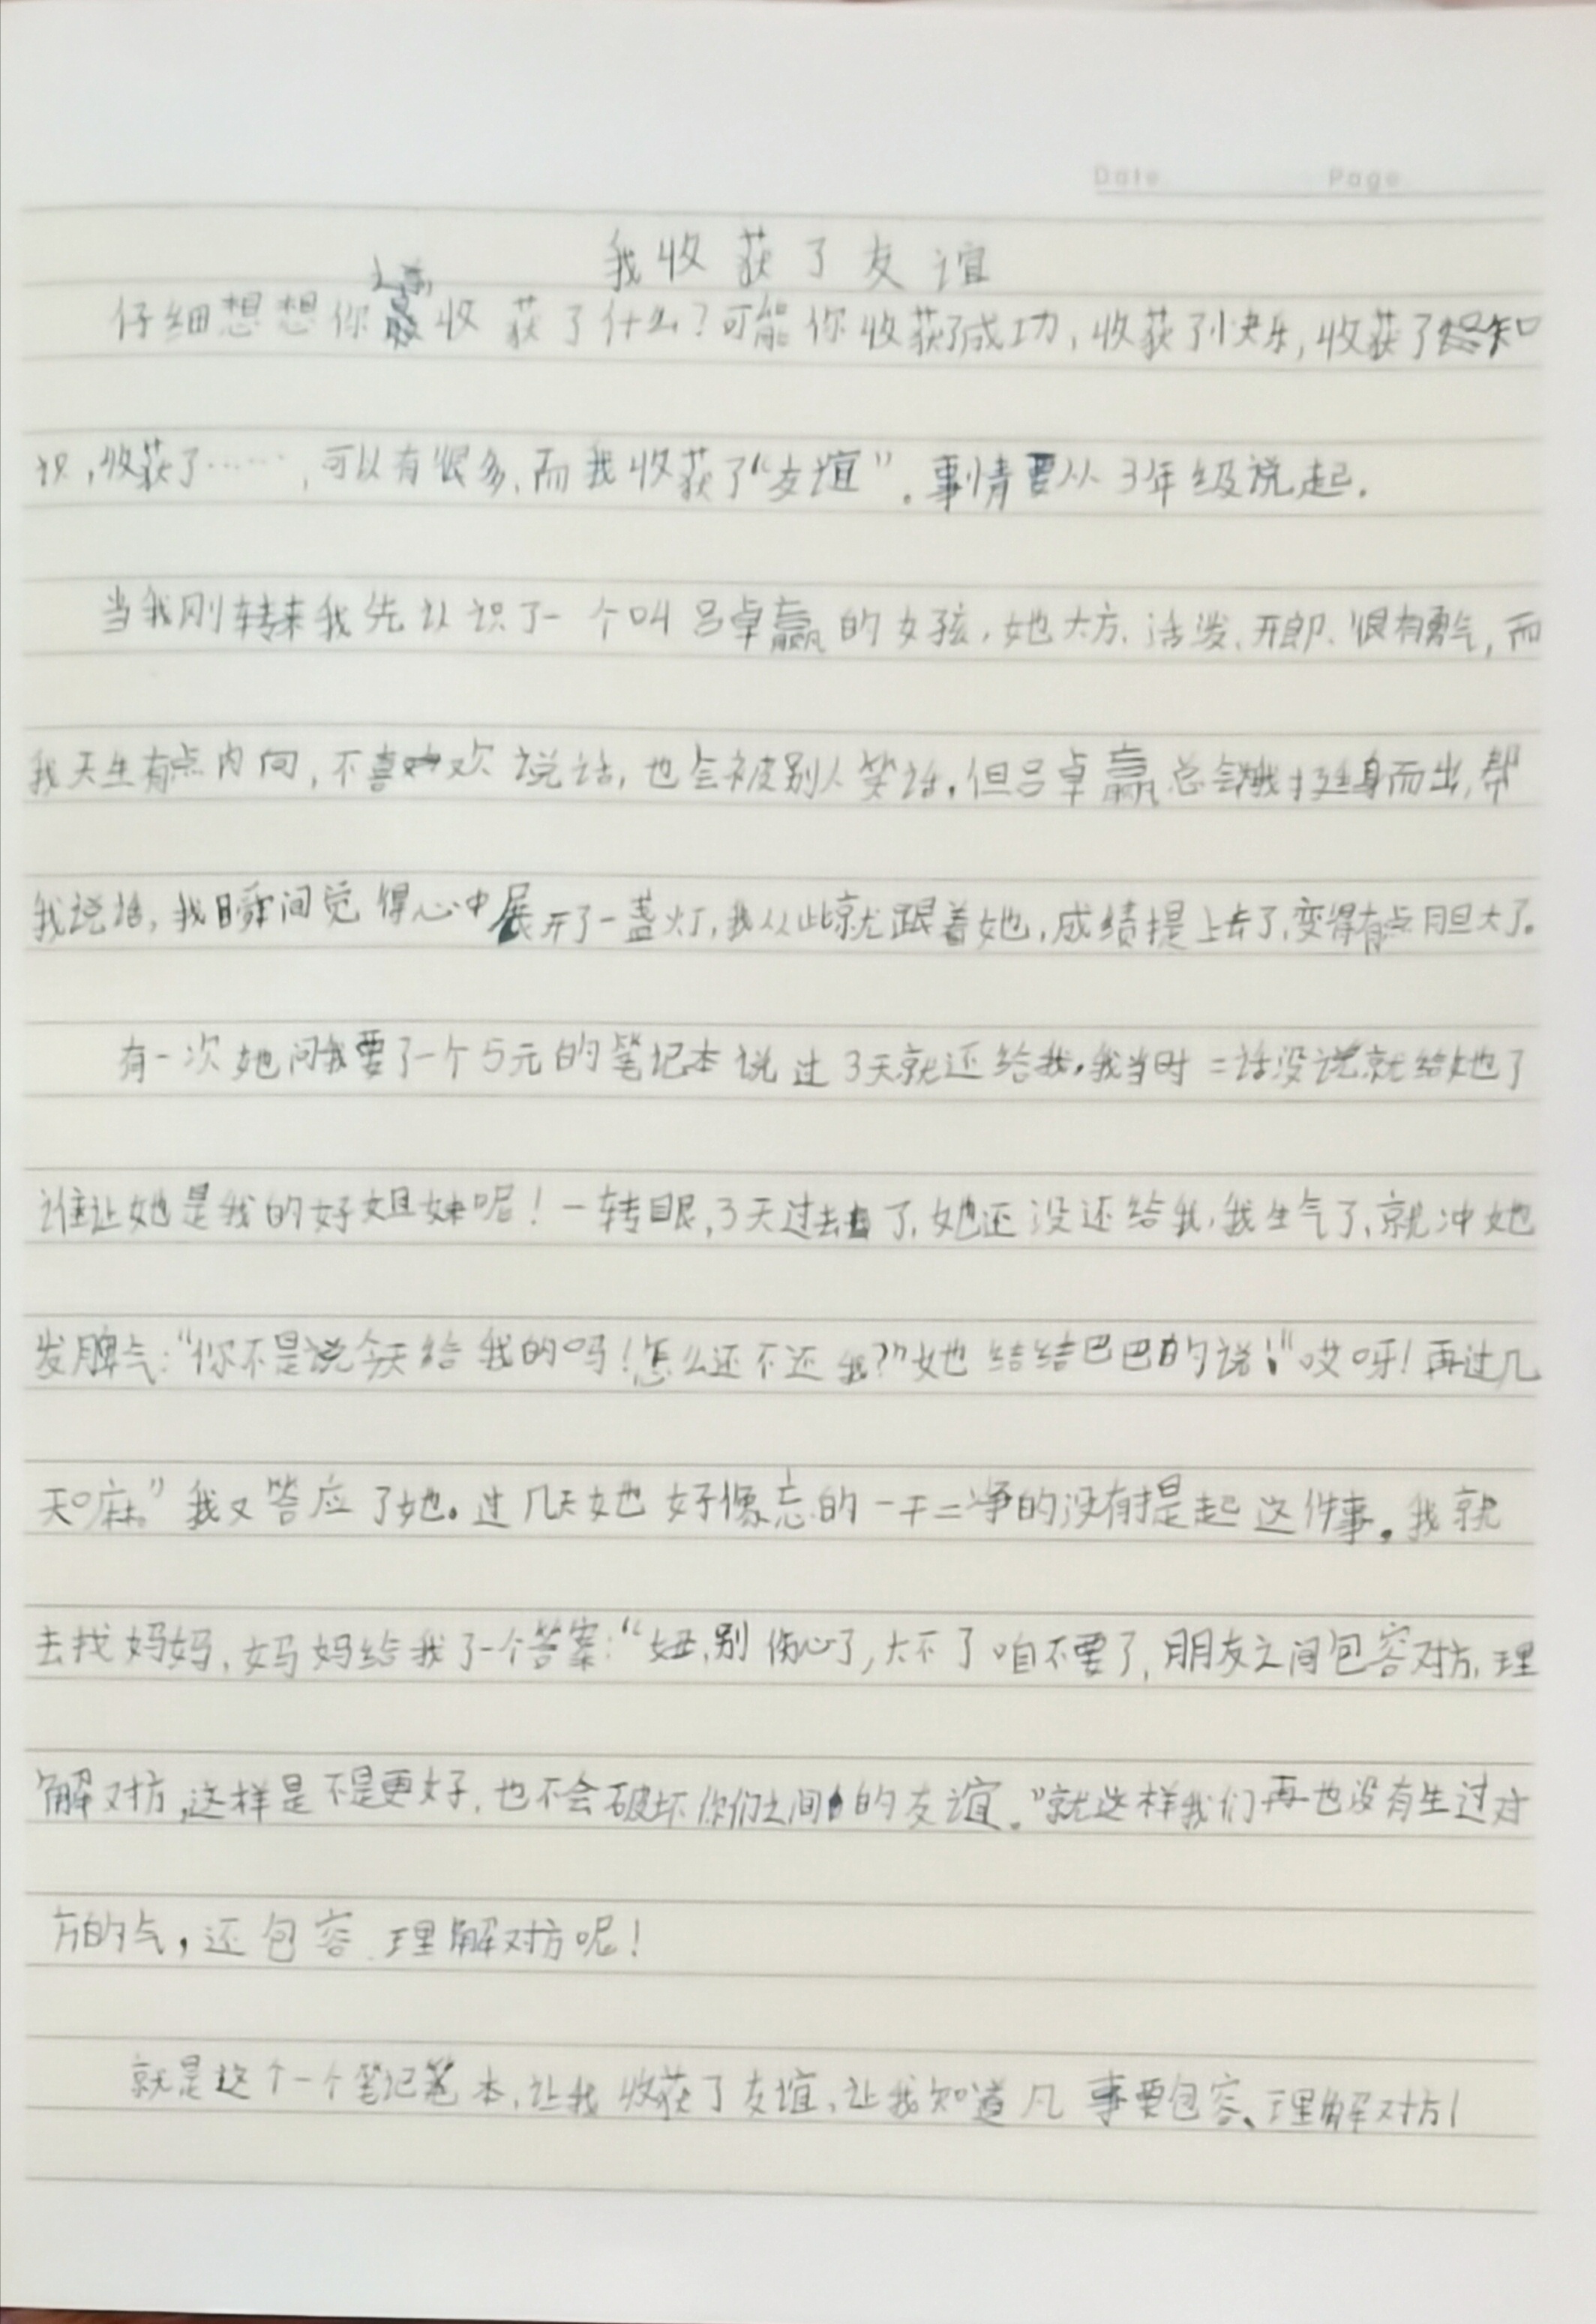 Date Page
我收获了友谊
仔细想想你收获了什么?可能你收获了成功,收获了快乐,收获了知
识,收获了……,可以有很多,而我收获了“友谊”。事情要从3年级说起.
当我刚转来我先认识了一个叫吕卓赢的女孩,她大方、活泼、开郎、很有勇气,而
我天生有点内向,不喜欢说话,也会被别人笑话,但吕卓赢总会为我挺身而出,帮
我说话,我瞬间觉得心中展开了一盏灯,我从此就跟着她,成绩提上去了,变得有点胆大了。
有一次她问我要了一个5元的笔记本说过3天就还给我,我当时二话没说就给她了
谁让她是我的好姐妹呢!一转眼,3天过去了,她还没还给我,我生气了,就冲她
发脾气:“你不是说今天给我的吗!怎么还不还我?”她结结巴巴的说:“哎呀!再过几
天嘛。”我又答应了她。过几天她好像忘的一干二净的没有提起这件事。我就
去找妈妈,妈妈给我了一个答案:“妞,别伤心了,大不了咱不要了,朋友之间包容对方,理
解对方,这样是不是更好,也不会破坏你们之间的友谊。”就这样我们再也没有生过对
方的气,还包容、理解对方呢!
就是这个一个笔记本,让我收获了友谊,让我知道凡事要包容、理解对方!